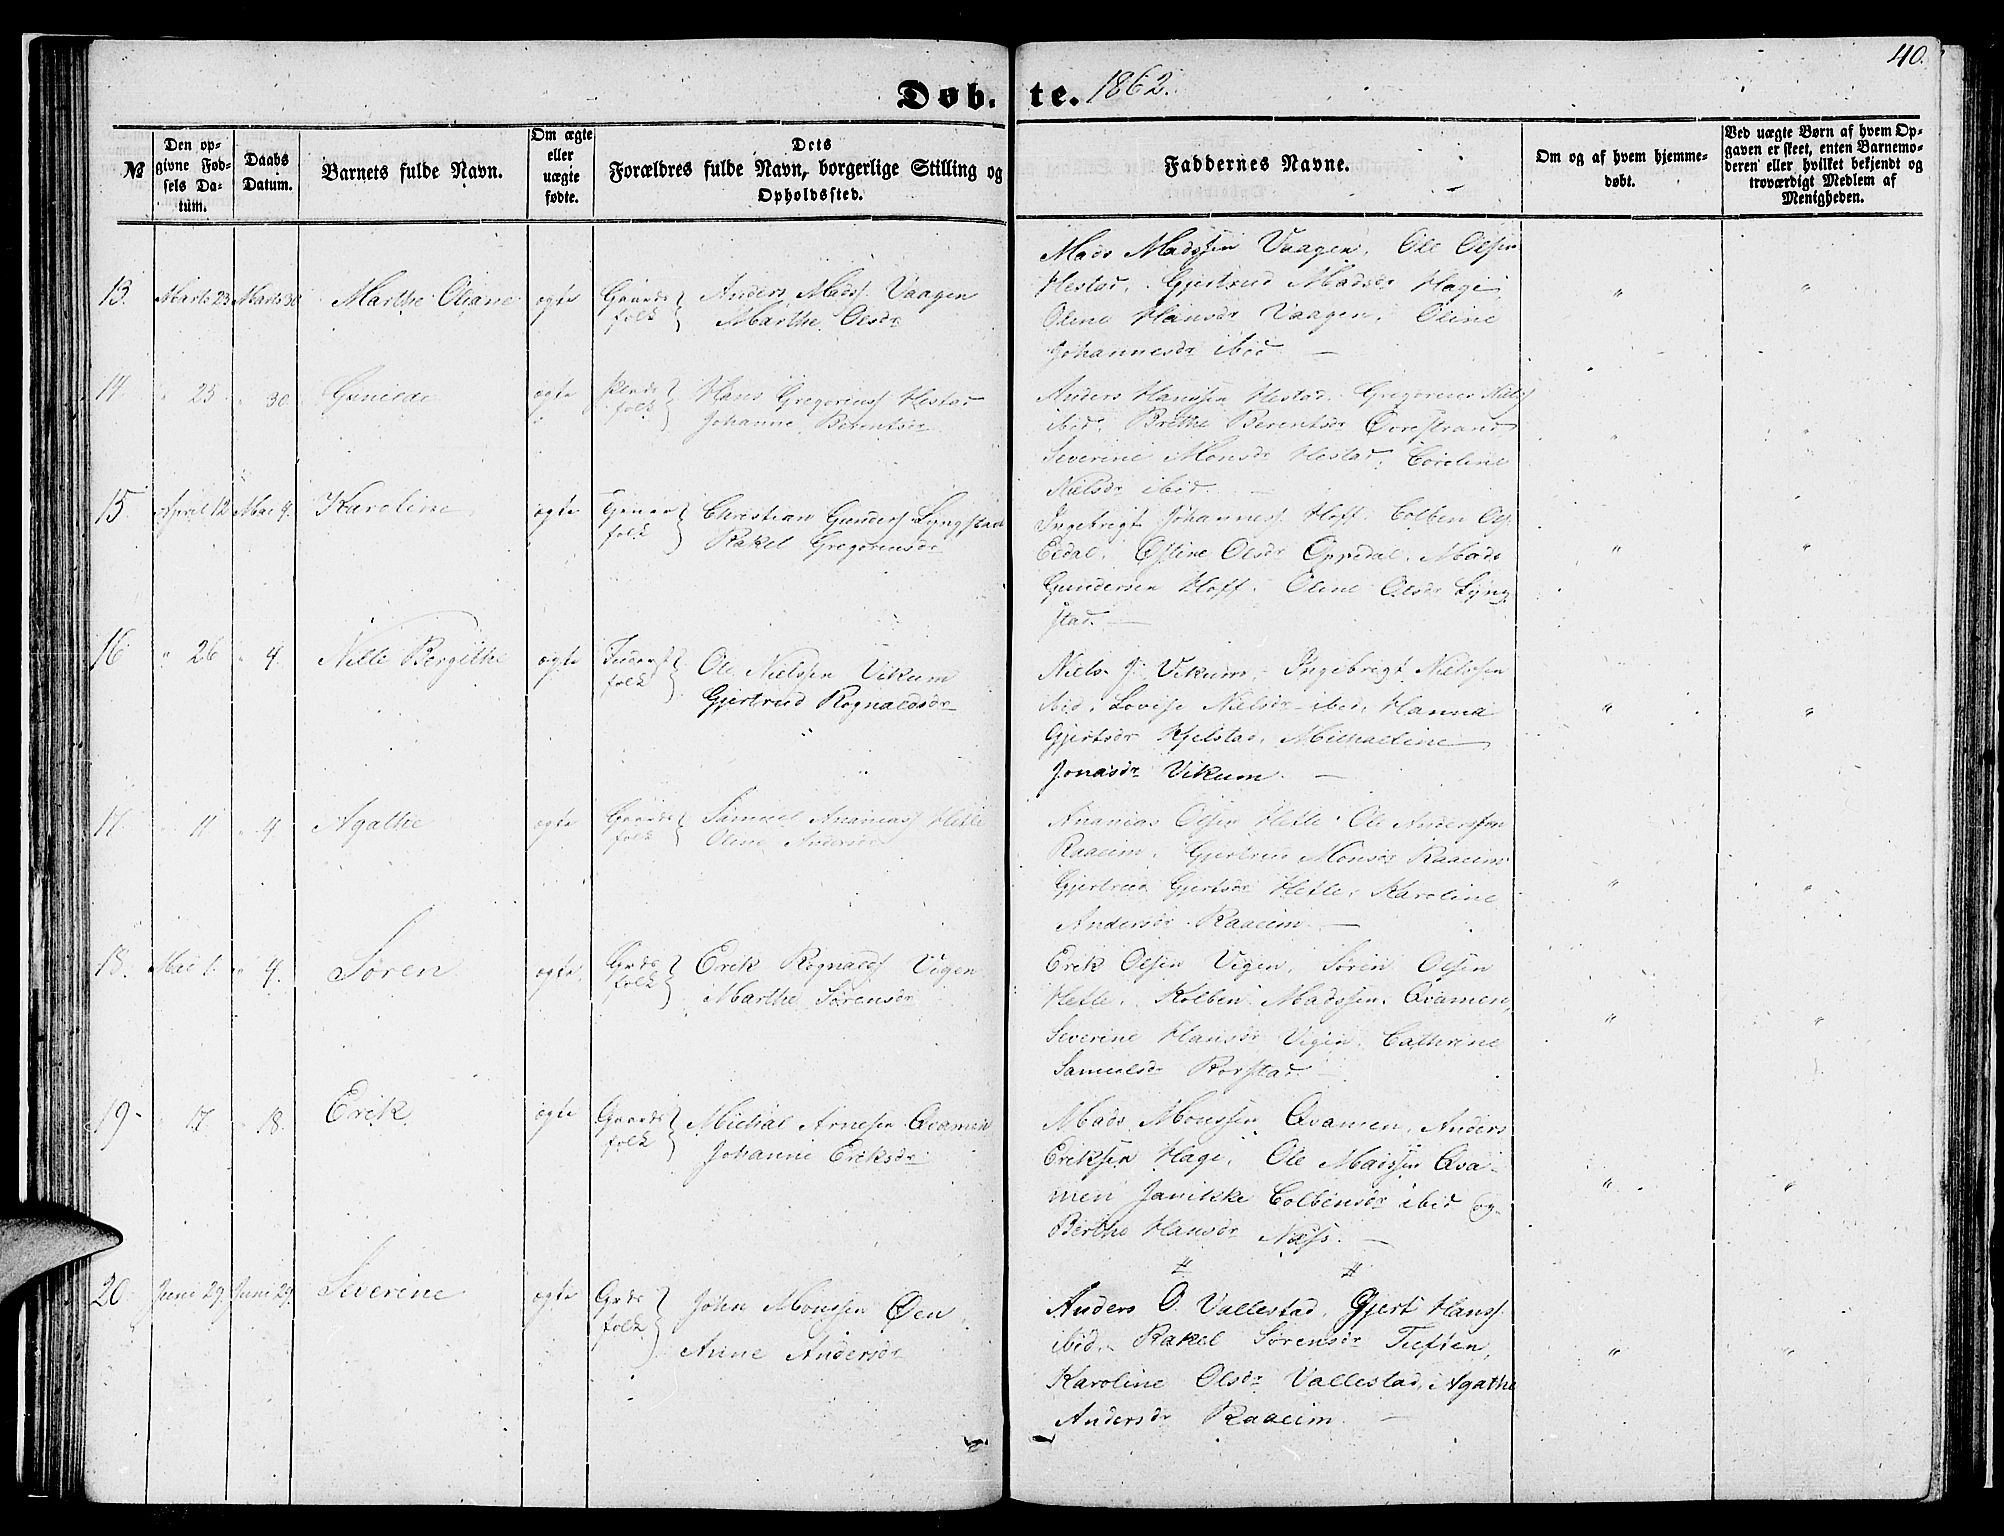 40.
Døb. te. 1862.
№
Den op-
givne Fød-
sels Da-
tum.
Daabs
Datum.
Barnets fulde Navn.
Om ægte
eller
uægte
fødte.
Dets
Forældres fulde Navn, borgerlige Stilling og
Opholdssted.
Faddernes Navne.
Om og af hvem hjemme-
døbt.
Ved uægte Børn af hvem Op-
gaven er skeet, enten Barnemo-
deren eller hvilket bekjendt og
troværdigt Medlem af
Menigheden.
13. Marts 23 Marts 30 Marthe Oliane ægte Gaards folk } Anders Madss. Vaagen
Marthe Olsdr
Mads Madssen Vaagen, Ole Olsen
Hestad, Gjertrud Madsdr Hage,
Oline Hansdr Vaagen, Oline
Johannesdr ibid. —
14. " 25 " 30. Gunilde ægte folk } Hans Gregoriuss Hestad
Johanne Berentsdr
Anders Hanssen Hestad. Gregorius Nielss
ibid. Brithe Berentsdr Øvrestrand
Severine Monsdr Hestad, Coroline
Nielsdr ibid. —
15. April 12 Mai 4. Karoline ægte folk } Christian Gunderss Lyngstad
Rakel Gregoriusdr
Ingebrigt Johanness. Hoff. Colben Ols.
Eldal. Østine Olsdr Oppedal. Mads
Gundersen Hoff. Oline Olsdr Lyng-
stad. —
16 " 26 " 4. Nille Bergithe ægte folk } Ole Nielssen Vikum
Gjertrud Rognaldsdr
Niels J. Vikum, Ingebrigt Nielssen
ibid. Lovise Nielsdr ibid, Hanna
Gjertsdr Kjelstad, Michaeline
Jonasdr Vikum. —
17. " 11 " 4 Agathe ægte Gaards folk } Samuel Ananiass Hetle
Oline Andersdr
Ananias Olsen Hetle. Ole Anderssen
Raaeim. Gjertrud Monsdr Raaeim
Gjertrud Gjertsdr Hetle, Karoline
Andersdr Raaeim. —
18. Mai 1. " 4. Søren ægte. Grds folk } Erik Rognaldss Vigen
Marthe Sørensdr
Erik Olsen Vigen, Søren Olsen
Hetle. Kolben Madssen. Qvamen,
Severine Hansdr Vigen. Cathrine
Samuelsdr Rørstad. —
19 " 17 " 18. Erik ægte Gaards folk } Michal Arnesen Qvamen
Johanne Eriksdr
Mads Monssen Qvamen, Anders
Eriksen Hage. Ole Madssen Qva-
men Janikke Colbensdr ibid og
Berthe Hansdr Næss. —
20. Juni 29. Juni 29. Severine ægte Grds folk } John Monssen Øen
Anne Andersdr
Anders O. Vallestad, Gjert Hanss.
ibid. Rakel Sørensdr Tuften,
Karoline Olsdr Vallestad, Agathe
Andersdr Raaeim. —